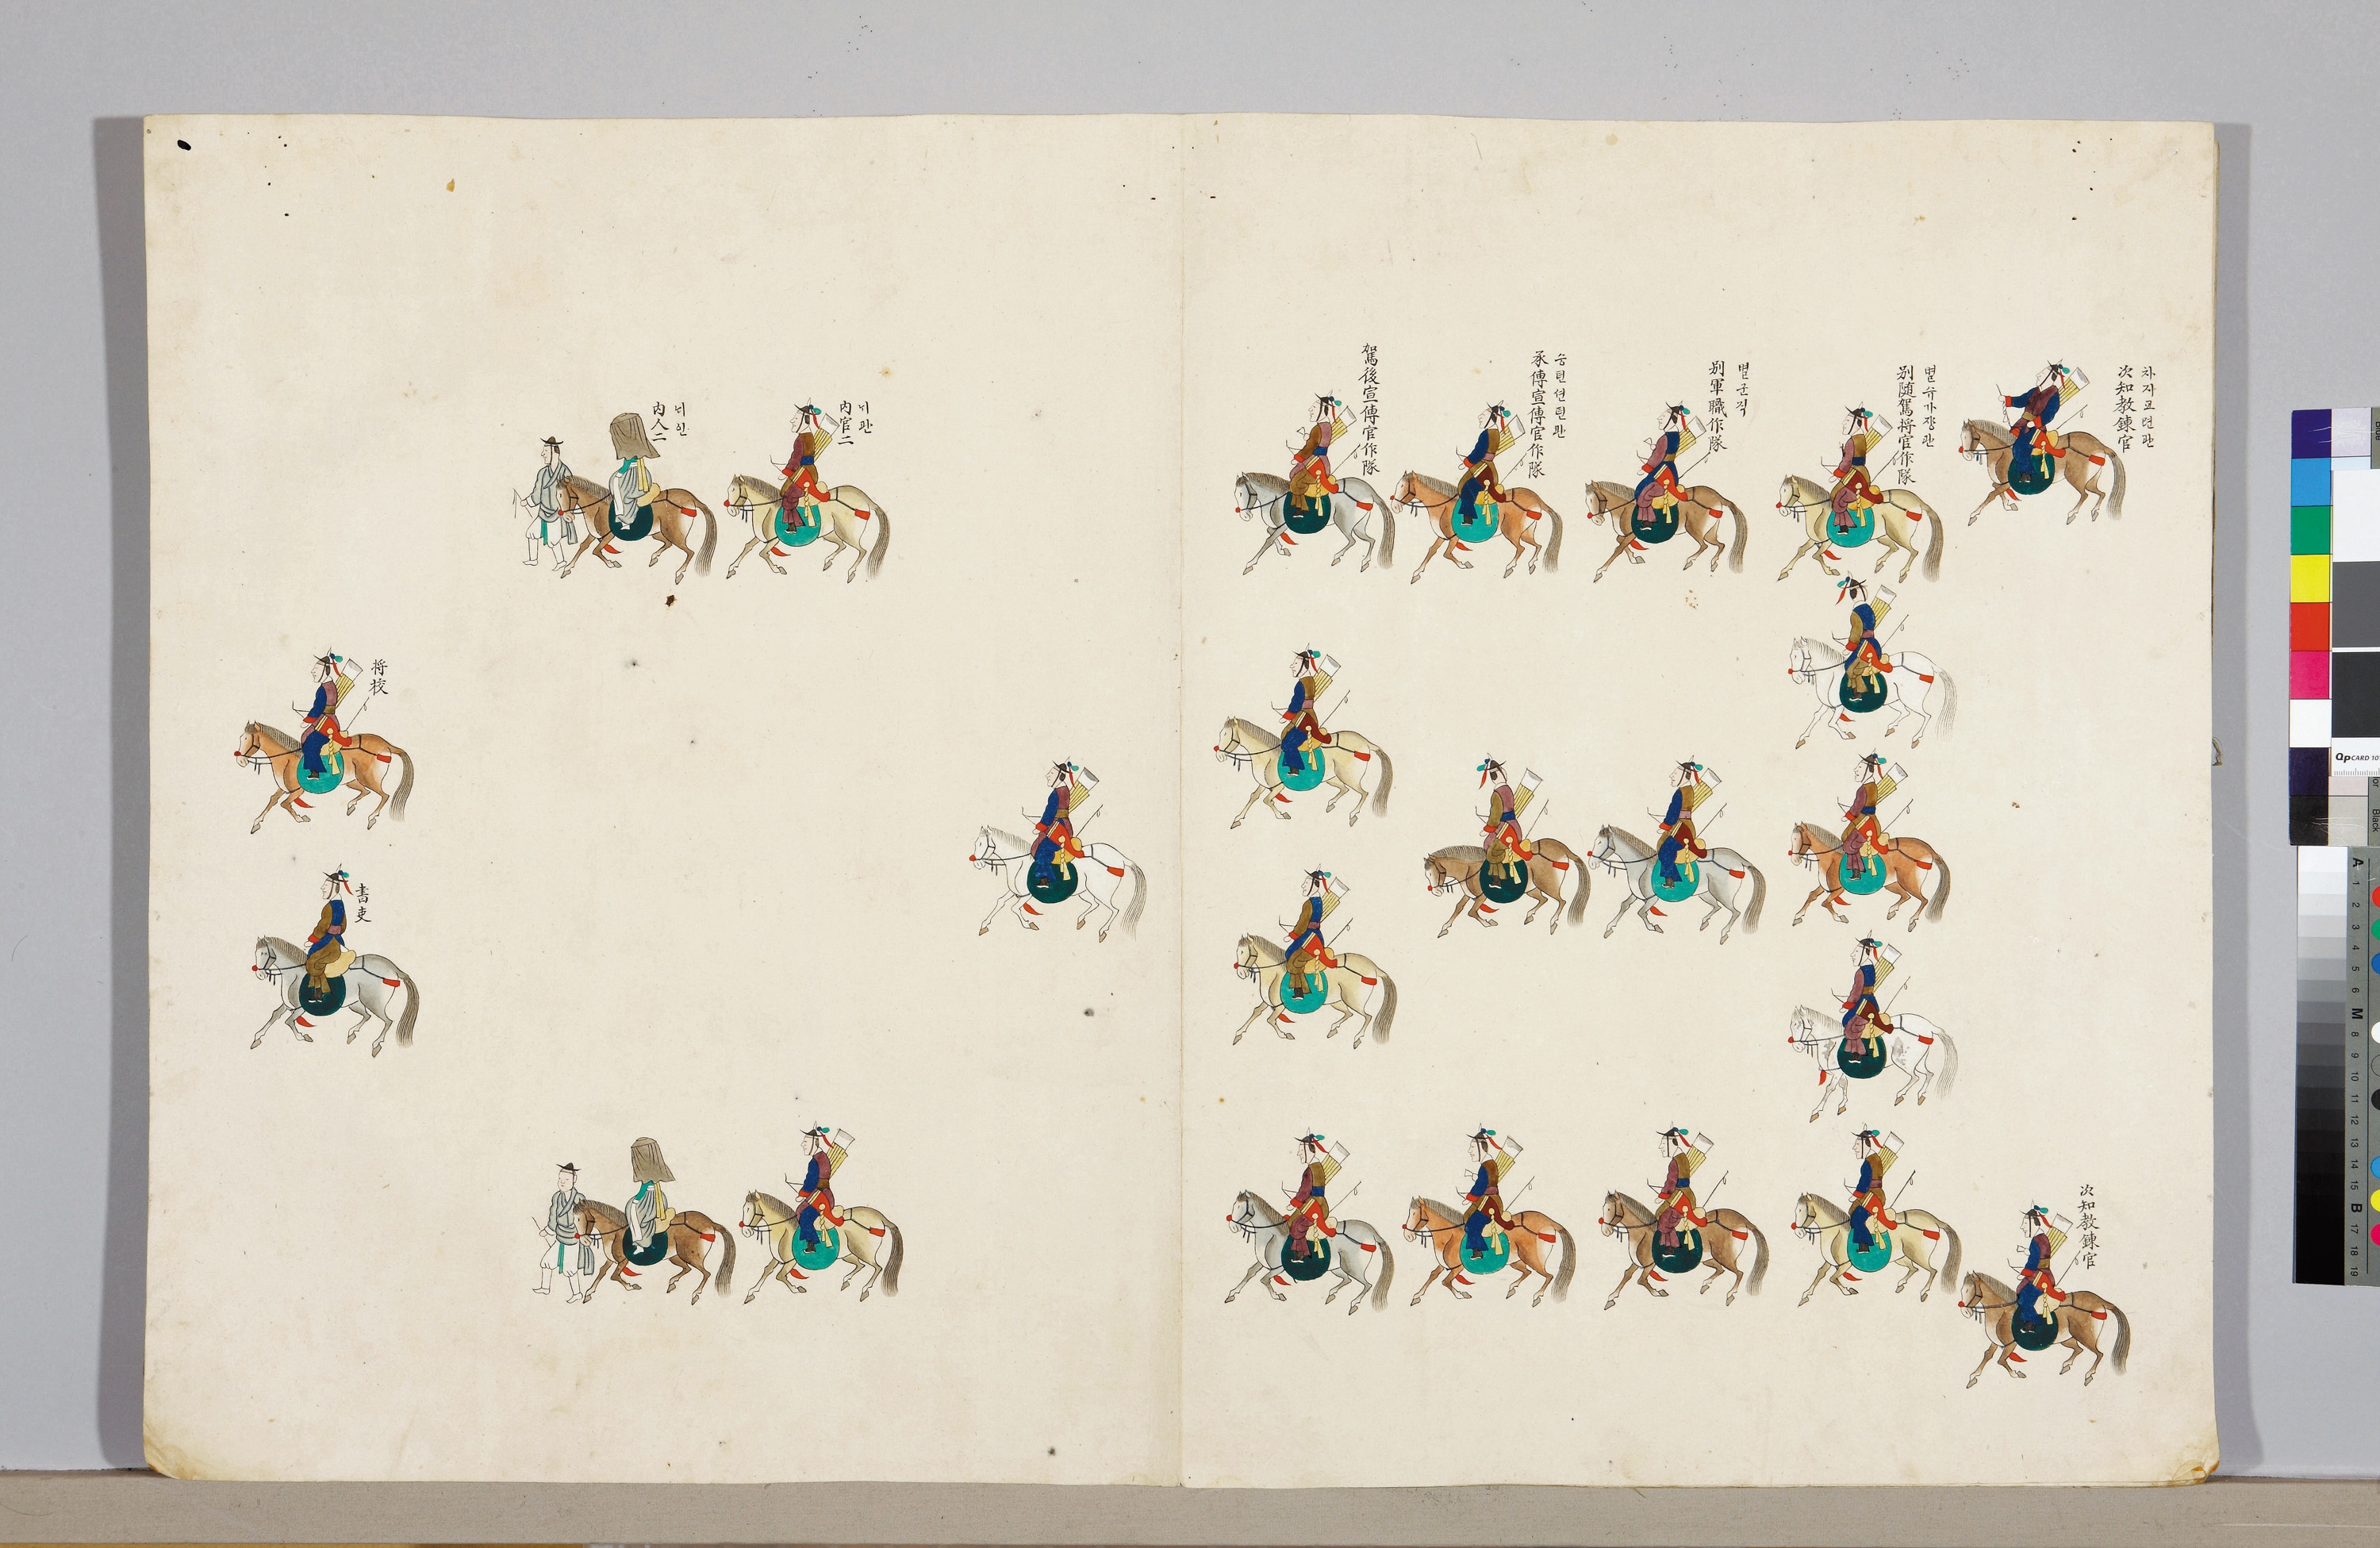 차지교련관
次知教鍊官
별슈가쟝관
别随駕将官作隊
별군직
别軍職作隊
승뎐션뎐관
承傳宣傳官作隊
駕後宣傳官作隊
次知教鍊官
내관
内官二
내인
内人二
将校
書吏
QPCARD 101
A 1 2 3 4 5 6 M 8 9 10 11 12 13 14 15 B 17 18 19